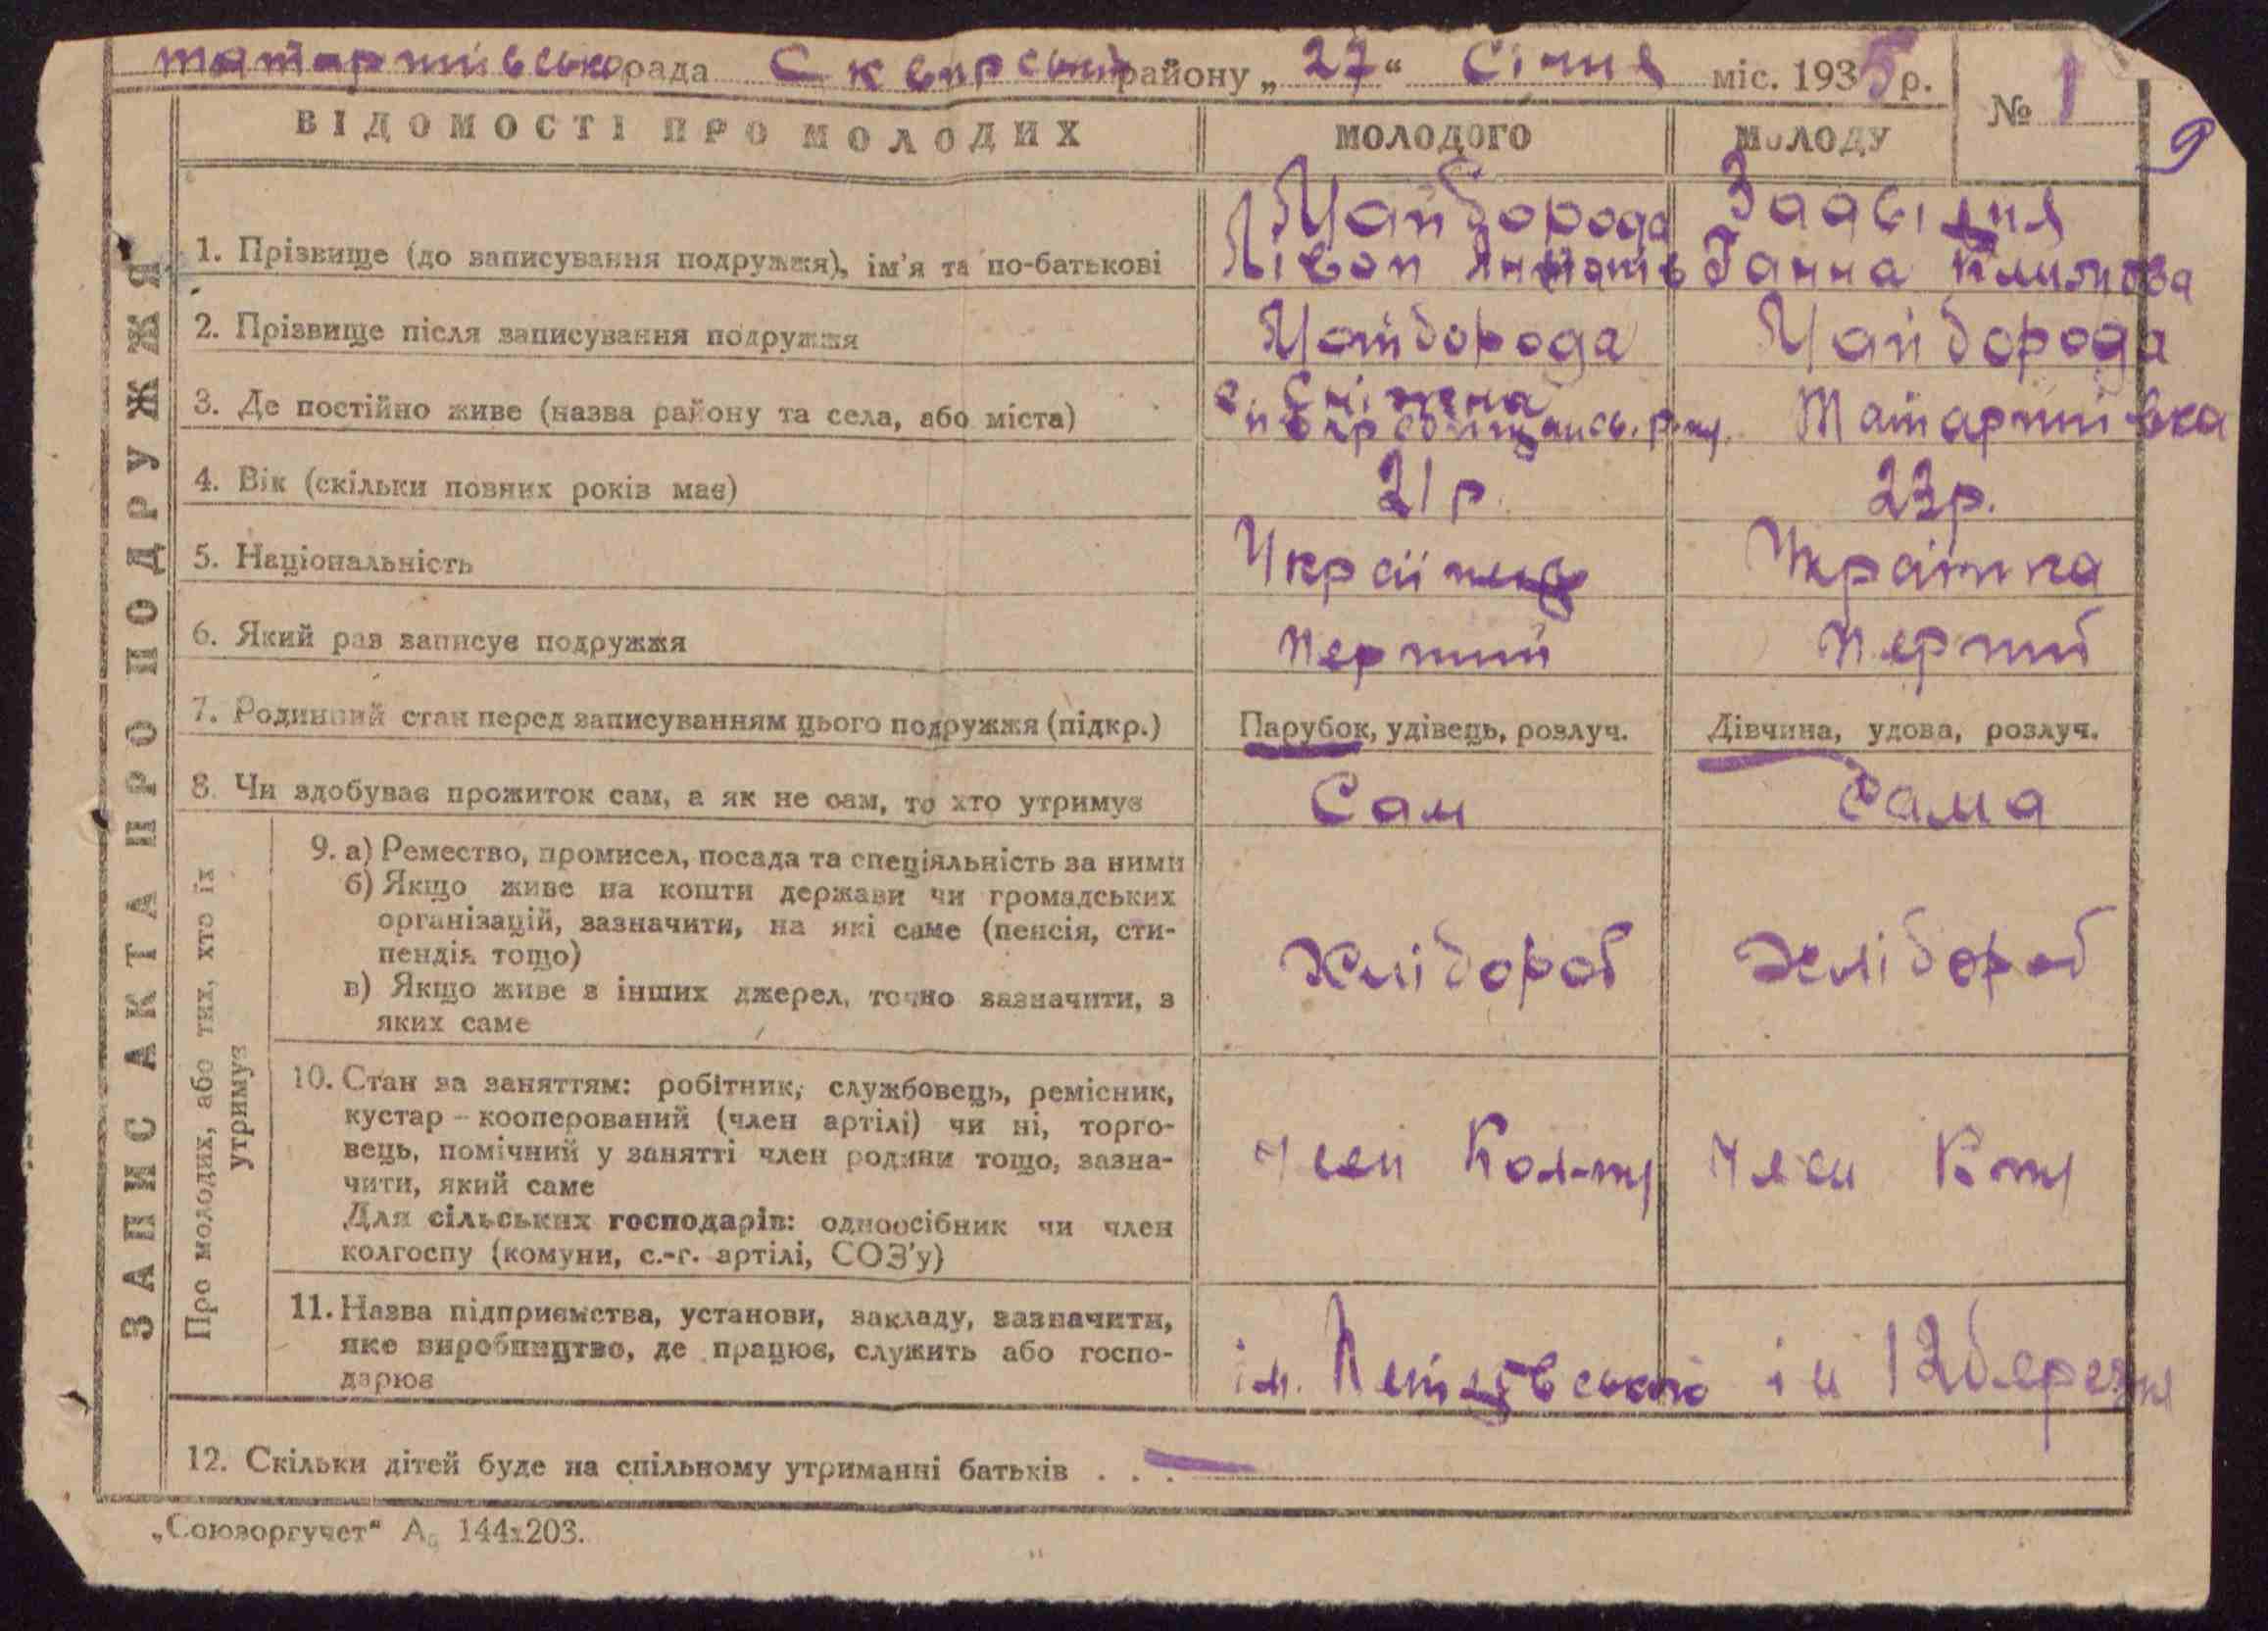 татарщівсько рада Сквирський району „ 27 “ Січня міс. 1935 р.
№ 1
9
ВІДОМОСТІ ПРО МОЛОДИХ МОЛОДОГО МОЛОДУ
ЗАПИС АКТА ПРО ПОДРУЖЖЯ
1. Прізвище (до записування подружжя), ім'я та по-батькові
Майборода
Лівон
Ганна
2. Прізвище після записування подружжя Майборода Майборода
3. Де постійно живе (назва району та села, або міста)
4. Вік (скільки повних років має) 21 р. 23 р.
5. Національність Українець Українка
6. Який раз записує подружжя перший перший
7. Родинний стан перед записуванням цього подружжя (підкр.) Парубок, удівець, розлуч. Дівчина, удова, розлуч.
8. Чи здобуває прожиток сам, а як не сам, то хто утримує Сам Сама
Про молодих, або тих, хто їх
утримує
9. а) Ремество, промисел, посада та спеціяльність за ними
б) Якщо живе на кошти держави чи громадських
організацій, зазначити, на які саме (пенсія, сти-
пендія тощо)
в) Якщо живе з інших джерел, точно зазначити, з
яких саме
Хлібороб Хлібороб
10. Стан за заняттям: робітник, службовець, ремісник,
кустар – кооперований (член артілі) чи ні, торго-
вець, помічний у занятті член родини тощо, зазна-
чити, який саме
Для сільських господарів: одноосібник чи член
колгоспу (комуни, с.-г. артілі, СОЗ'у)
Член Член
11. Назва підприємства, установи, закладу, зазначити,
яке виробництво, де працює, служить або госпо-
дарює
ім. ім 12 березня
12. Скільки дітей буде на спільному утриманні батьків . . . —
„Союзоргучет“ А5 144х203.